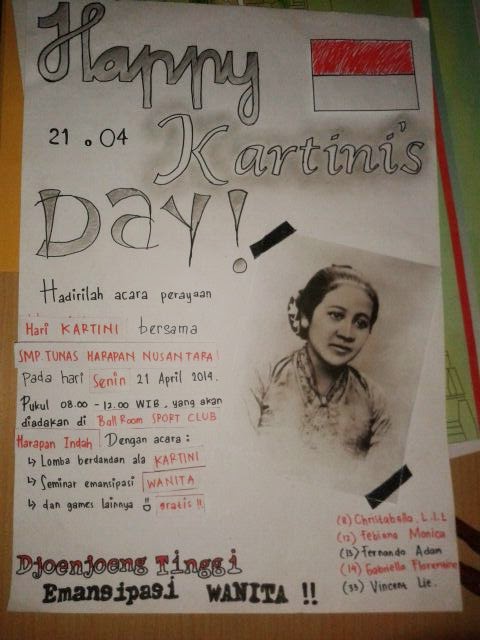 Happy
21.04
Kartini's
DAY!
Hadirilah acara perayaan
Hari KARTINI bersama
SMP. TUNAS HARAPAN NUSANTARA
Pada hari Senin 21 April 2014.
Pukul 08.00 - 12.00 WIB, yang akan
diadakan di Ball Room SPORT CLUB
Harapan Indah Dengan acara :
↳ Lomba berdandan ala KARTINI
↳ Seminar emansipasi WANITA
↳ dan games lainnya gratis !!
Djoenjoeng Tinggi
Emansipasi WANITA !!
(8) Christabella. L.I.L
(12) Febiana Monica
(13) Fernando Adam
(14) Gabriella Florentine
(35) Vincent Lie.